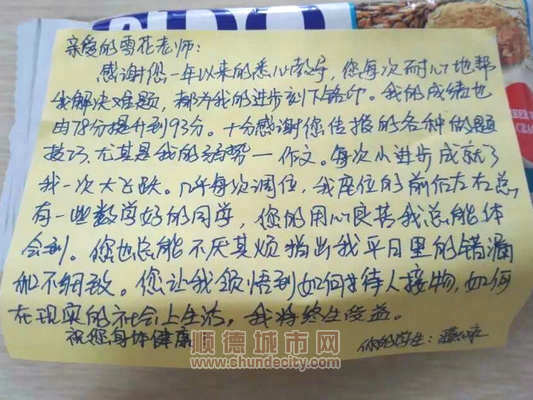 亲爱的雪花老师：
感谢您一年以来的悉心教导，您每次耐心地帮
我解决难题，都为我的进步刻下烙印。我的成绩也
由78分提升到93分。十分感谢您传授的各种做题
技巧，尤其是我的弱势一作文。每次小进步成就了
我一次大飞跃。几乎每次调位，我座位的前后左右总
有一些数学好的同学，您的用心良苦我总能体
会到。您也总能不厌其烦指出我平日里的错漏
和不细致。您让我领悟到如何待人接物，如何
在现实的社会上生活，我将终生受益。
祝您身体健康
你的学生：
顺德城市网
www.shundecity.com